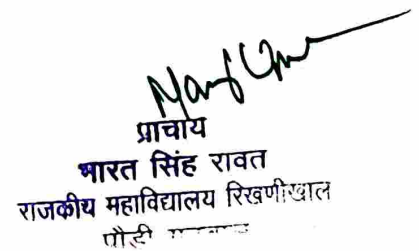 प्राचार्य
भारत सिंह रावत
राजकीय महाविद्यालय रिखणीखाल
पौड़ी